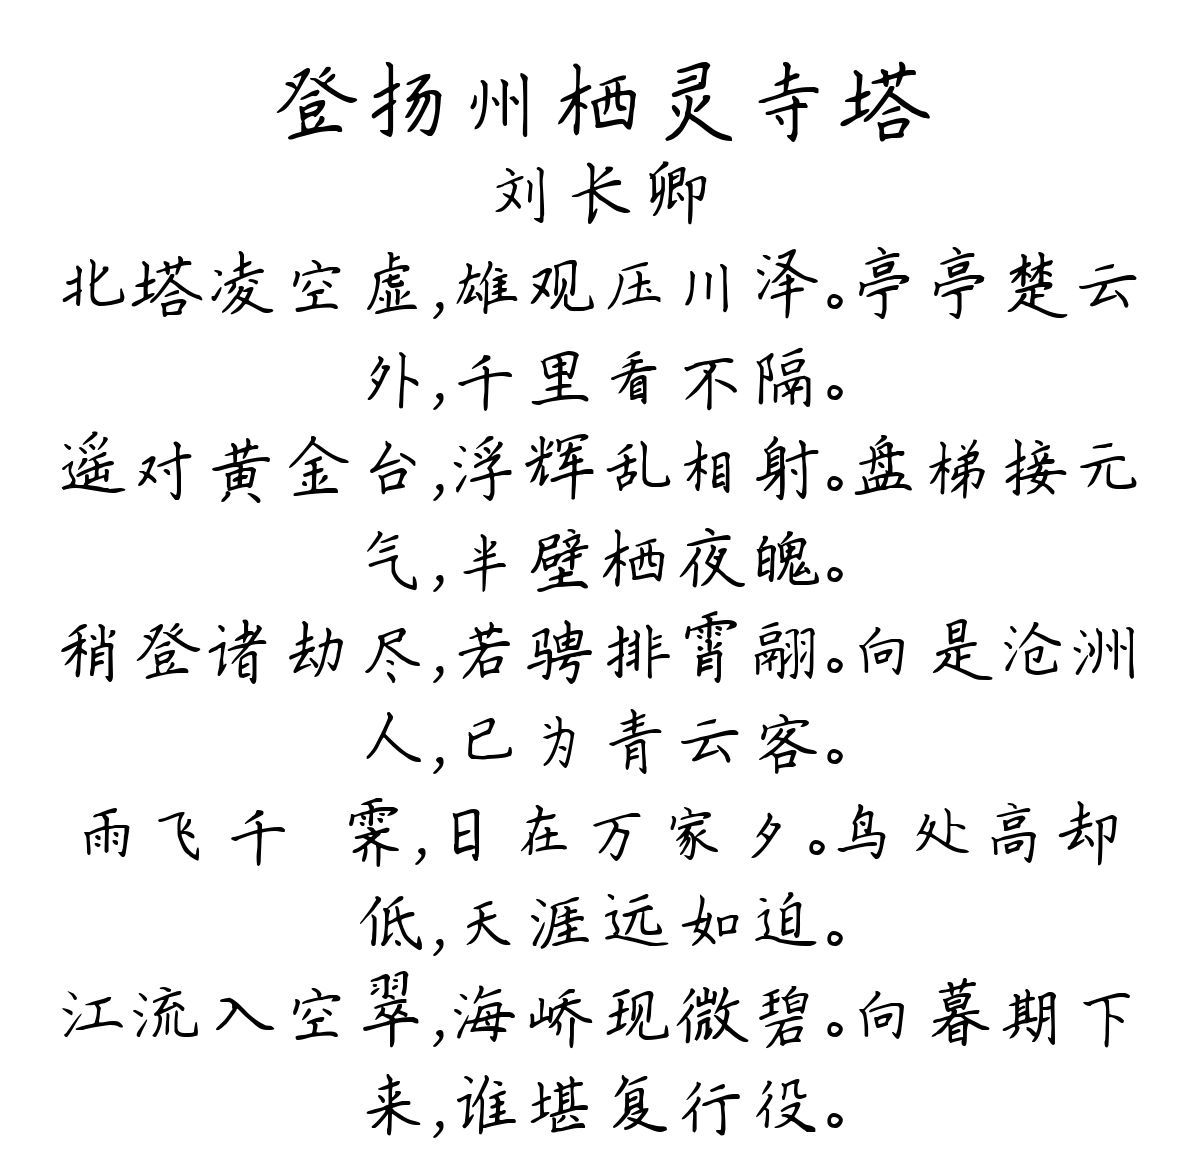 登扬州栖灵寺塔
刘长卿
北塔凌空虚,雄观压川泽。亭亭楚云
外,千里看不隔。
遥对黄金台,浮辉乱相射。盘梯接元
气,半壁栖夜魄。
稍登诸劫尽,若骋排霄翮。向是沧洲
人,已为青云客。
雨飞千 霁,日在万家夕。鸟处高却
低,天涯远如迫。
江流入空翠,海峤现微碧。向暮期下
来,谁堪复行役。